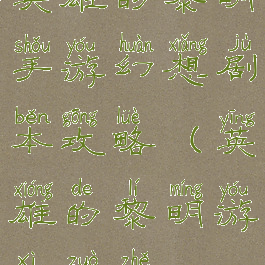 英雄的黎明
shǒu yóu huàn xiǎng jù
手游幻想剧
běn gōng lüè yīng
本攻略(英
xióng de lí míng yóu
雄的黎明游
xì zuò zhě